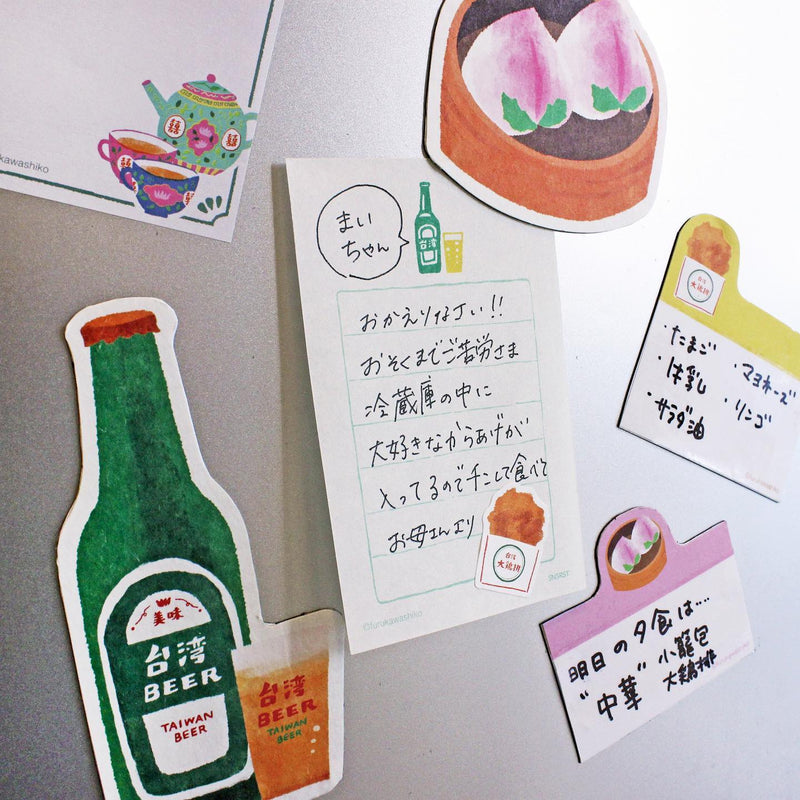 囍
囍
kawashiko
まい
ちゃん
台湾
おかえりなさい!!
おそくまでご苦労さま
冷蔵庫の中に
大好きなからあげが
入ってるのでチンして食べて
お母さんより
台湾
大鶏排
SNSRST
©furukawashiko
美味
台湾
BEER
TAIWAN
BEER
台湾
BEER
TAIWAN
BEER
台湾
大鶏排
・たまご
・牛乳
・サラダ油
・マヨネーズ
・リンゴ
明日の夕食は…
"中華"
小籠包
大鶏排